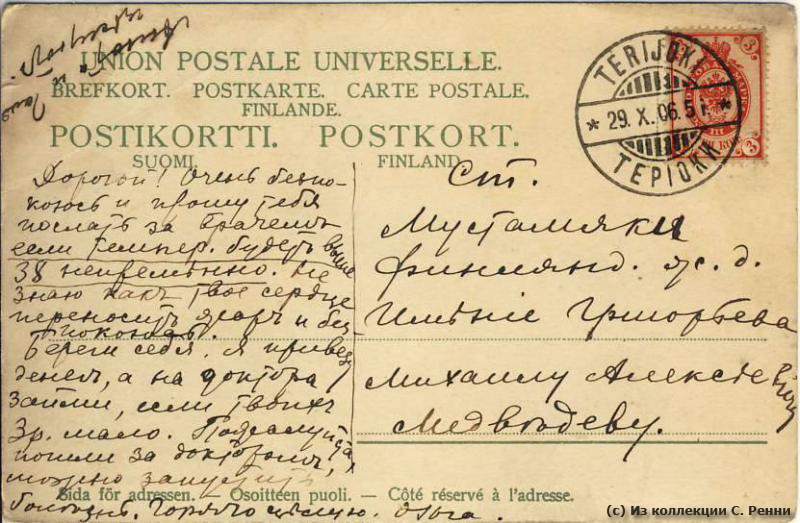 UNION POSTALE UNIVERSELLE.
BREFKORT. POSTKARTE. CARTE POSTALE.
FINLANDE.
POSTIKORTTI. POSTKORT.
SUOMI. FINLAND.
TERIJOKI
* 29. X. 06. 5 i. *
ТЕРІОКИ
3
3
Дорогой! Очень безпо-
коюсь и прошу тебя
послать за врачемъ
если темпер. будетъ выше
38 непремѣнно. Не
знаю какъ твое сердце
переноситъ жаръ и без-
покоюсь.
Береги себя, я привезу
денегъ, а на доктора
займи, если твоихъ
3 р. мало. Пожалуйста,
пошли за докторомъ,
можно запустить
болѣзнь. Горячо цѣлую. Ольга.
Ст.
Мустамяки
Финлянд. ж. д.
Имѣніе Григорьева
Михаилу Алексѣевичу
Медвѣдеву.
Sida för adressen. — Osoitteen puoli. — Côté réservé à l'adresse.
(c) Из коллекции С. Ренни